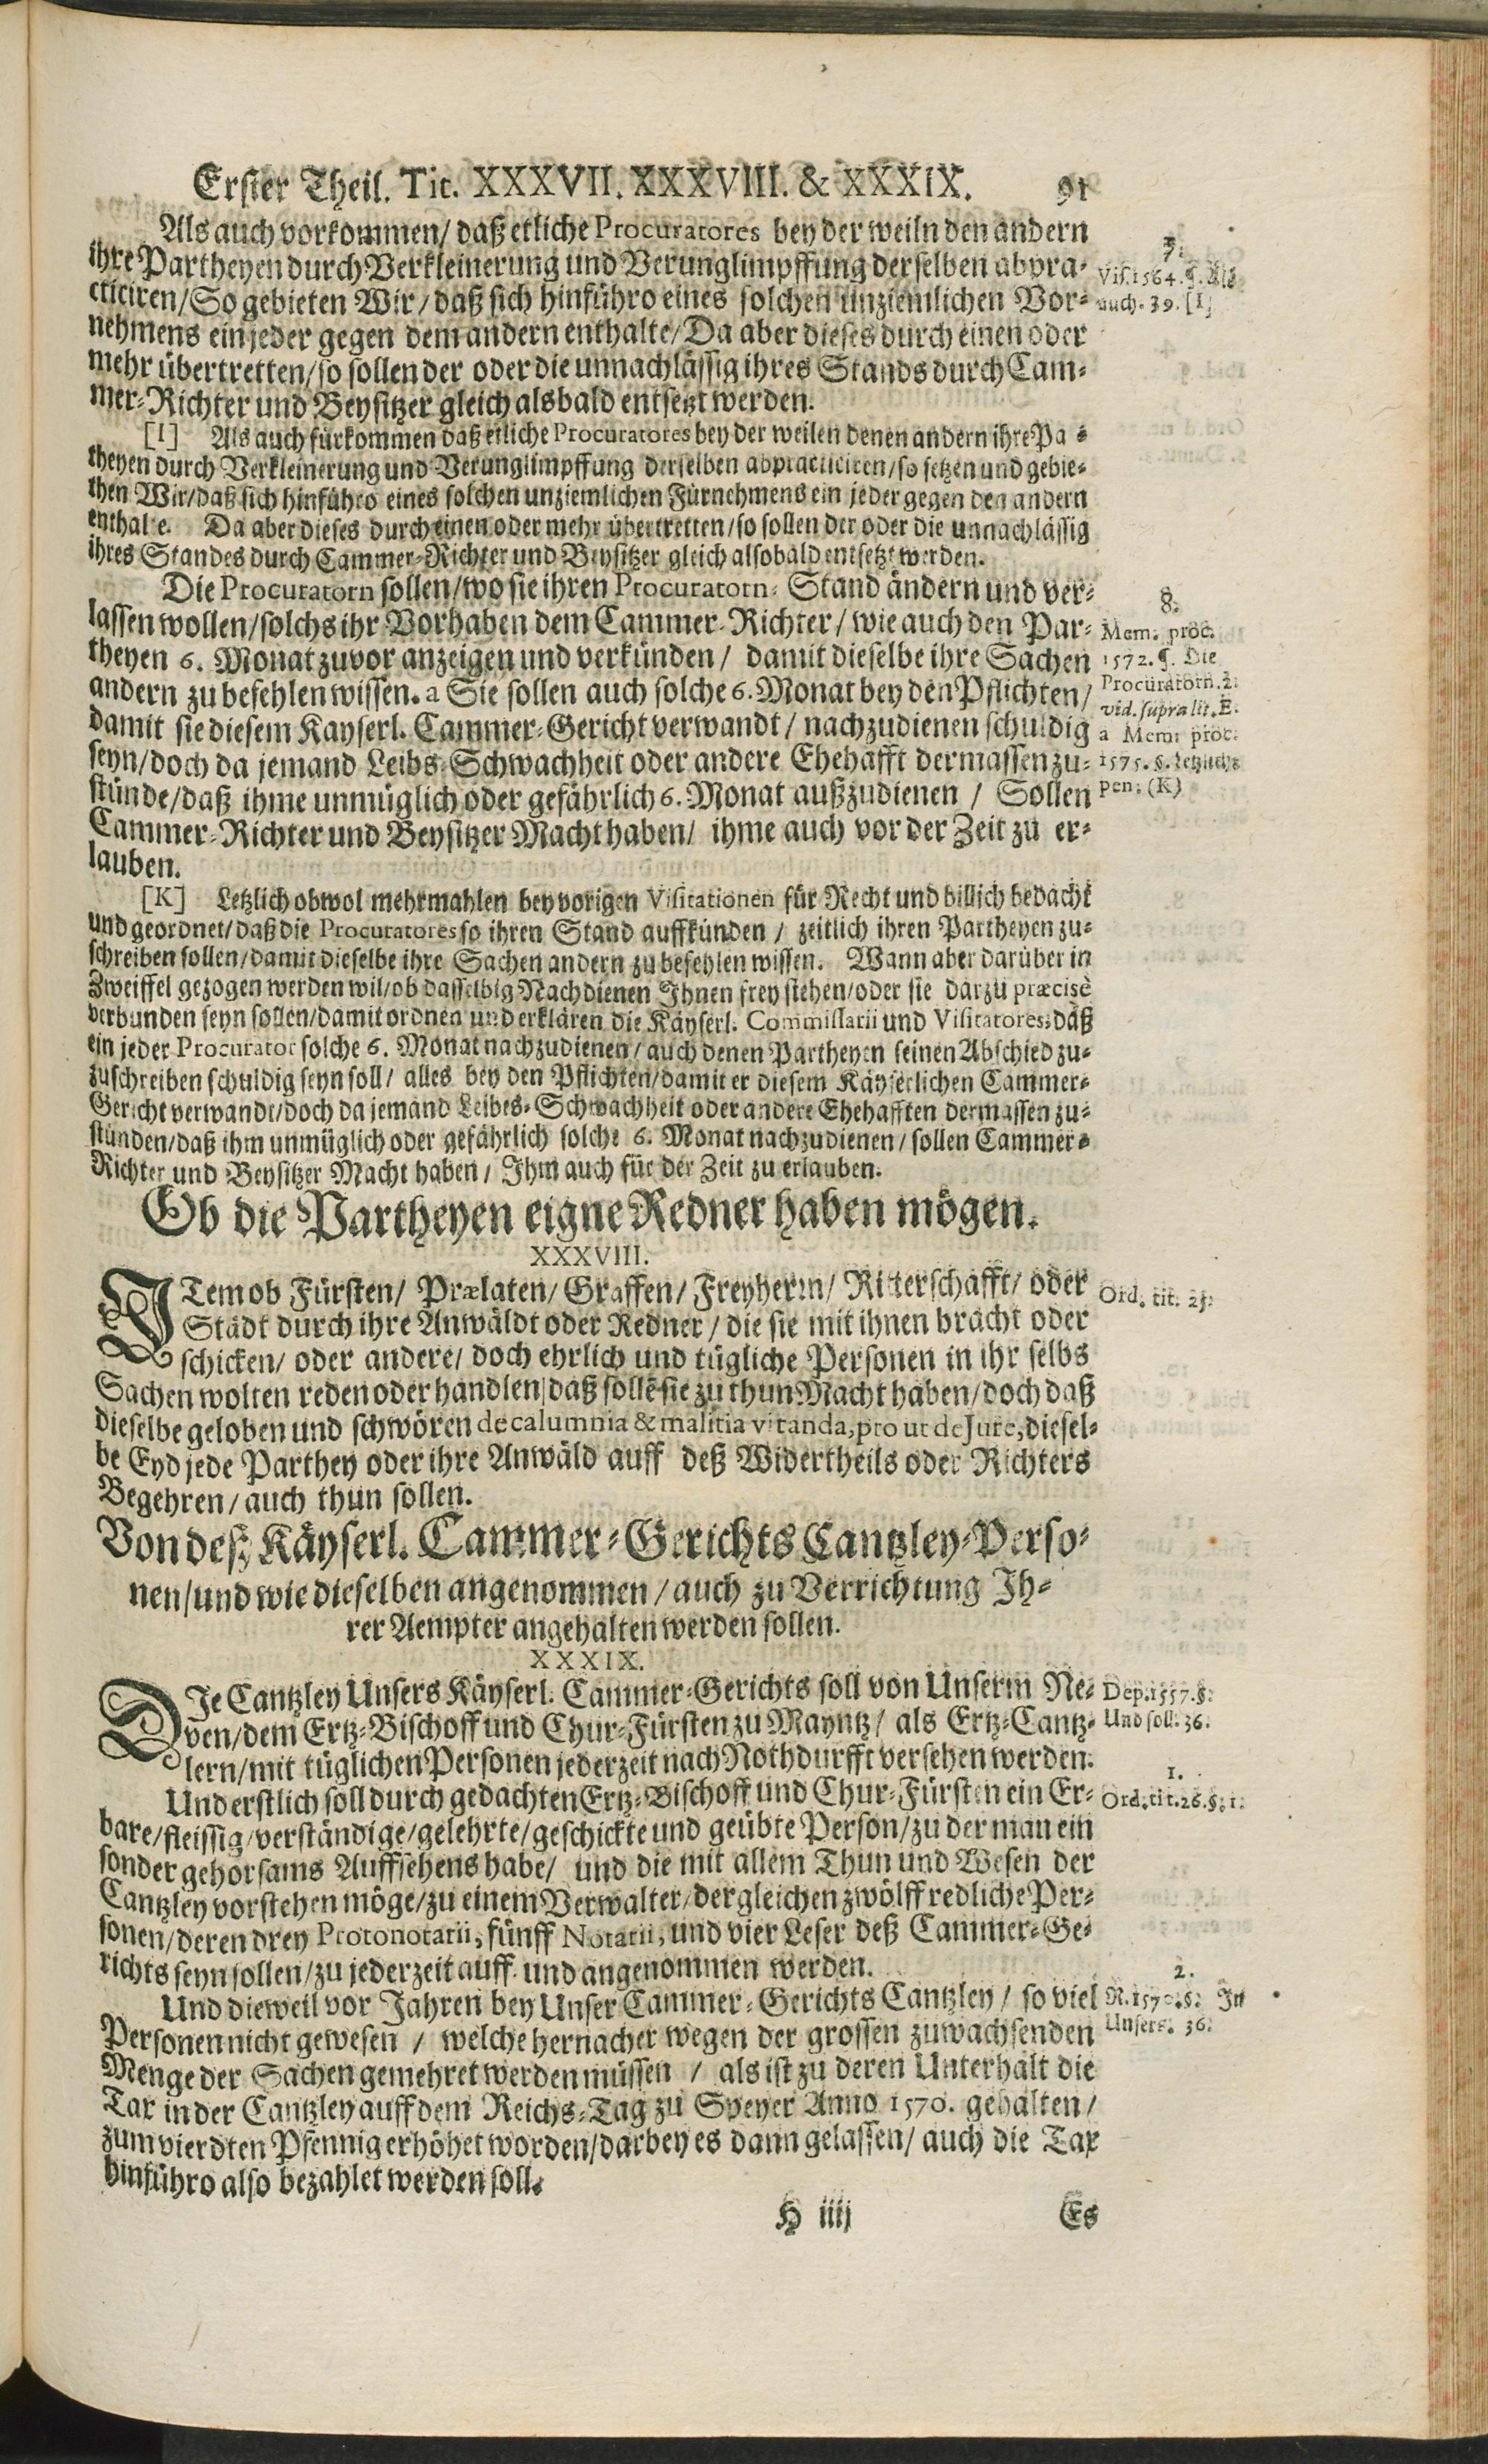 Erster Theil. Tit. XXXVII. XXXVIII. & XXXIX. 91
Als auch vorkommen/ daß etliche Procuratores bey der weiln den andern
ihre Partheyen durch Verkleinerung und Verunglimpffung derselben abpra-
cticiren/ So gebieten Wir/ daß sich hinführo eines solchen unziemlichen Vor-
nehmens ein jeder gegen dem andern enthalte/ Da aber dieses durch einen oder
mehr übertretten/ so sollen der oder die unnachlässig ihres Stands durch Cam-
mer-Richter und Beysitzer gleich alsbald entsetzt werden.
7.
Vis. 1564. §. Als
auch. 39. [I]
[I] Als auch fürkommen daß etliche Procuratores bey der weilen denen andern ihre Pa-
theyen durch Verkleinerung und Verunglimpffung derselben abpracticiren/ so setzen und gebie-
then Wir/ daß sich hinführo eines solchen unziemlichen Fürnehmens ein jeder gegen den andern
enthalte. Da aber dieses durch einen oder mehr übertretten/ so sollen der oder die unnachlässig
ihres Standes durch Cammer-Richter und Beysitzer gleich alsobald entsetzt werden.
Die Procuratorn sollen/ wo sie ihren Procuratorn-Stand ändern und ver-
lassen wollen/ solchs ihr Vorhaben dem Cammer-Richter/ wie auch den Par-
theyen 6. Monat zuvor anzeigen und verkünden/ damit dieselbe ihre Sachen
andern zu befehlen wissen. a Sie sollen auch solche 6. Monat bey den Pflichten/
damit sie diesem Kayserl. Cammer-Gericht verwandt/ nachzudienen schuldig
seyn/ doch da jemand Leibs-Schwachheit oder andere Ehehafft dermassen zu-
stünde/ daß ihme unmüglich oder gefährlich 6. Monat außzudienen/ Sollen
Cammer-Richter und Beysitzer Macht haben/ ihme auch vor der Zeit zu er-
lauben.
8.
Mem. proc.
1572. §. Die
Procuratorn. 2.
vid. supra lit. E.
a Mem. proc.
1575. §. Letzlich
pen. (K)
[K] Letzlich obwol mehrmahlen bey vorigen Visitationen für Recht und billich bedacht
und geordnet/ daß die Procuratores so ihren Stand auffkünden/ zeitlich ihren Partheyen zu-
schreiben sollen/ damit dieselbe ihre Sachen andern zu befehlen wissen. Wann aber darüber in
Zweiffel gezogen werden wil/ ob dasselbig Nachdienen Ihnen frey stehen/ oder sie darzu præcisè
verbunden seyn sollen/ damit ordnen und erklären die Käyserl. Commissarii und Visitatores, daß
ein jeder Procurator solche 6. Monat nachzudienen/ auch denen Partheyen seinen Abschied zu-
zuschreiben schuldig seyn soll/ alles bey den Pflichten/ damit er diesem Käyserlichen Cammer-
Gericht verwandt/ doch da jemand Leibes-Schwachheit oder andere Ehehafften dermassen zu-
stünden/ daß ihm unmüglich oder gefährlich solche 6. Monat nachzudienen/ sollen Cammer-
Richter und Beysitzer Macht haben/ Ihm auch für der Zeit zu erlauben.
Ob die Partheyen eigne Redner haben mögen.
XXXVIII.
ITem ob Fürsten/ Prælaten/ Graffen/ Freyherrn/ Ritterschafft/ oder
Städt durch ihre Anwäldt oder Redner/ die sie mit ihnen bracht oder
schicken/ oder andere/ doch ehrlich und tügliche Personen in ihr selbs
Sachen wolten reden oder handlen/ daß sollẽ sie zu thun Macht haben/ doch daß
dieselbe geloben und schwören de calumnia & malitia vitanda, pro ut de Jure, diesel-
be Eyd jede Parthey oder ihre Anwäld auff deß Widertheils oder Richters
Begehren/ auch thun sollen.
Ord. tit. 25.
Von deß Käyserl. Cammer-Gerichts Cantzley-Perso-
nen/ und wie dieselben angenommen/ auch zu Verrichtung Ih-
rer Aempter angehalten werden sollen.
XXXIX.
DIe Cantzley Unsers Käyserl. Cammer-Gerichts soll von Unserm Ne-
ven/ dem Ertz-Bischoff und Chur-Fürsten zu Mayntz/ als Ertz-Cantz-
lern/ mit tüglichen Personen jederzeit nach Nothdurfft versehen werden.
Dep. 1557. §.
Und soll. 36.
Und erstlich soll durch gedachten Ertz-Bischoff und Chur-Fürsten ein Er-
bare/ fleissig/ verständige/ gelehrte/ geschickte und geübte Person/ zu der man ein
sonder gehorsams Auffsehens habe/ und die mit allem Thun und Wesen der
Cantzley vorstehen möge/ zu einem Verwalter/ dergleichen zwölff redliche Per-
sonen/ deren drey Protonotarii, fünff Notarii, und vier Leser deß Cammer-Ge-
richts seyn sollen/ zu jederzeit auff- und angenommen werden.
1.
Ord. tit. 26. §. 1.
Und dieweil vor Jahren bey Unser Cammer-Gerichts Cantzley/ so viel
Personen nicht gewesen/ welche hernacher wegen der grossen zuwachsenden
Menge der Sachen gemehret werden müssen/ als ist zu deren Unterhalt die
Tax in der Cantzley auff dem Reichs-Tag zu Speyer Anno 1570. gehalten/
zum vierdten Pfennig erhöhet worden/ darbey es dann gelassen/ auch die Tax
hinführo also bezahlet werden soll.
2.
R. 1570. §. In
Unsers. 36.
H iiij Es